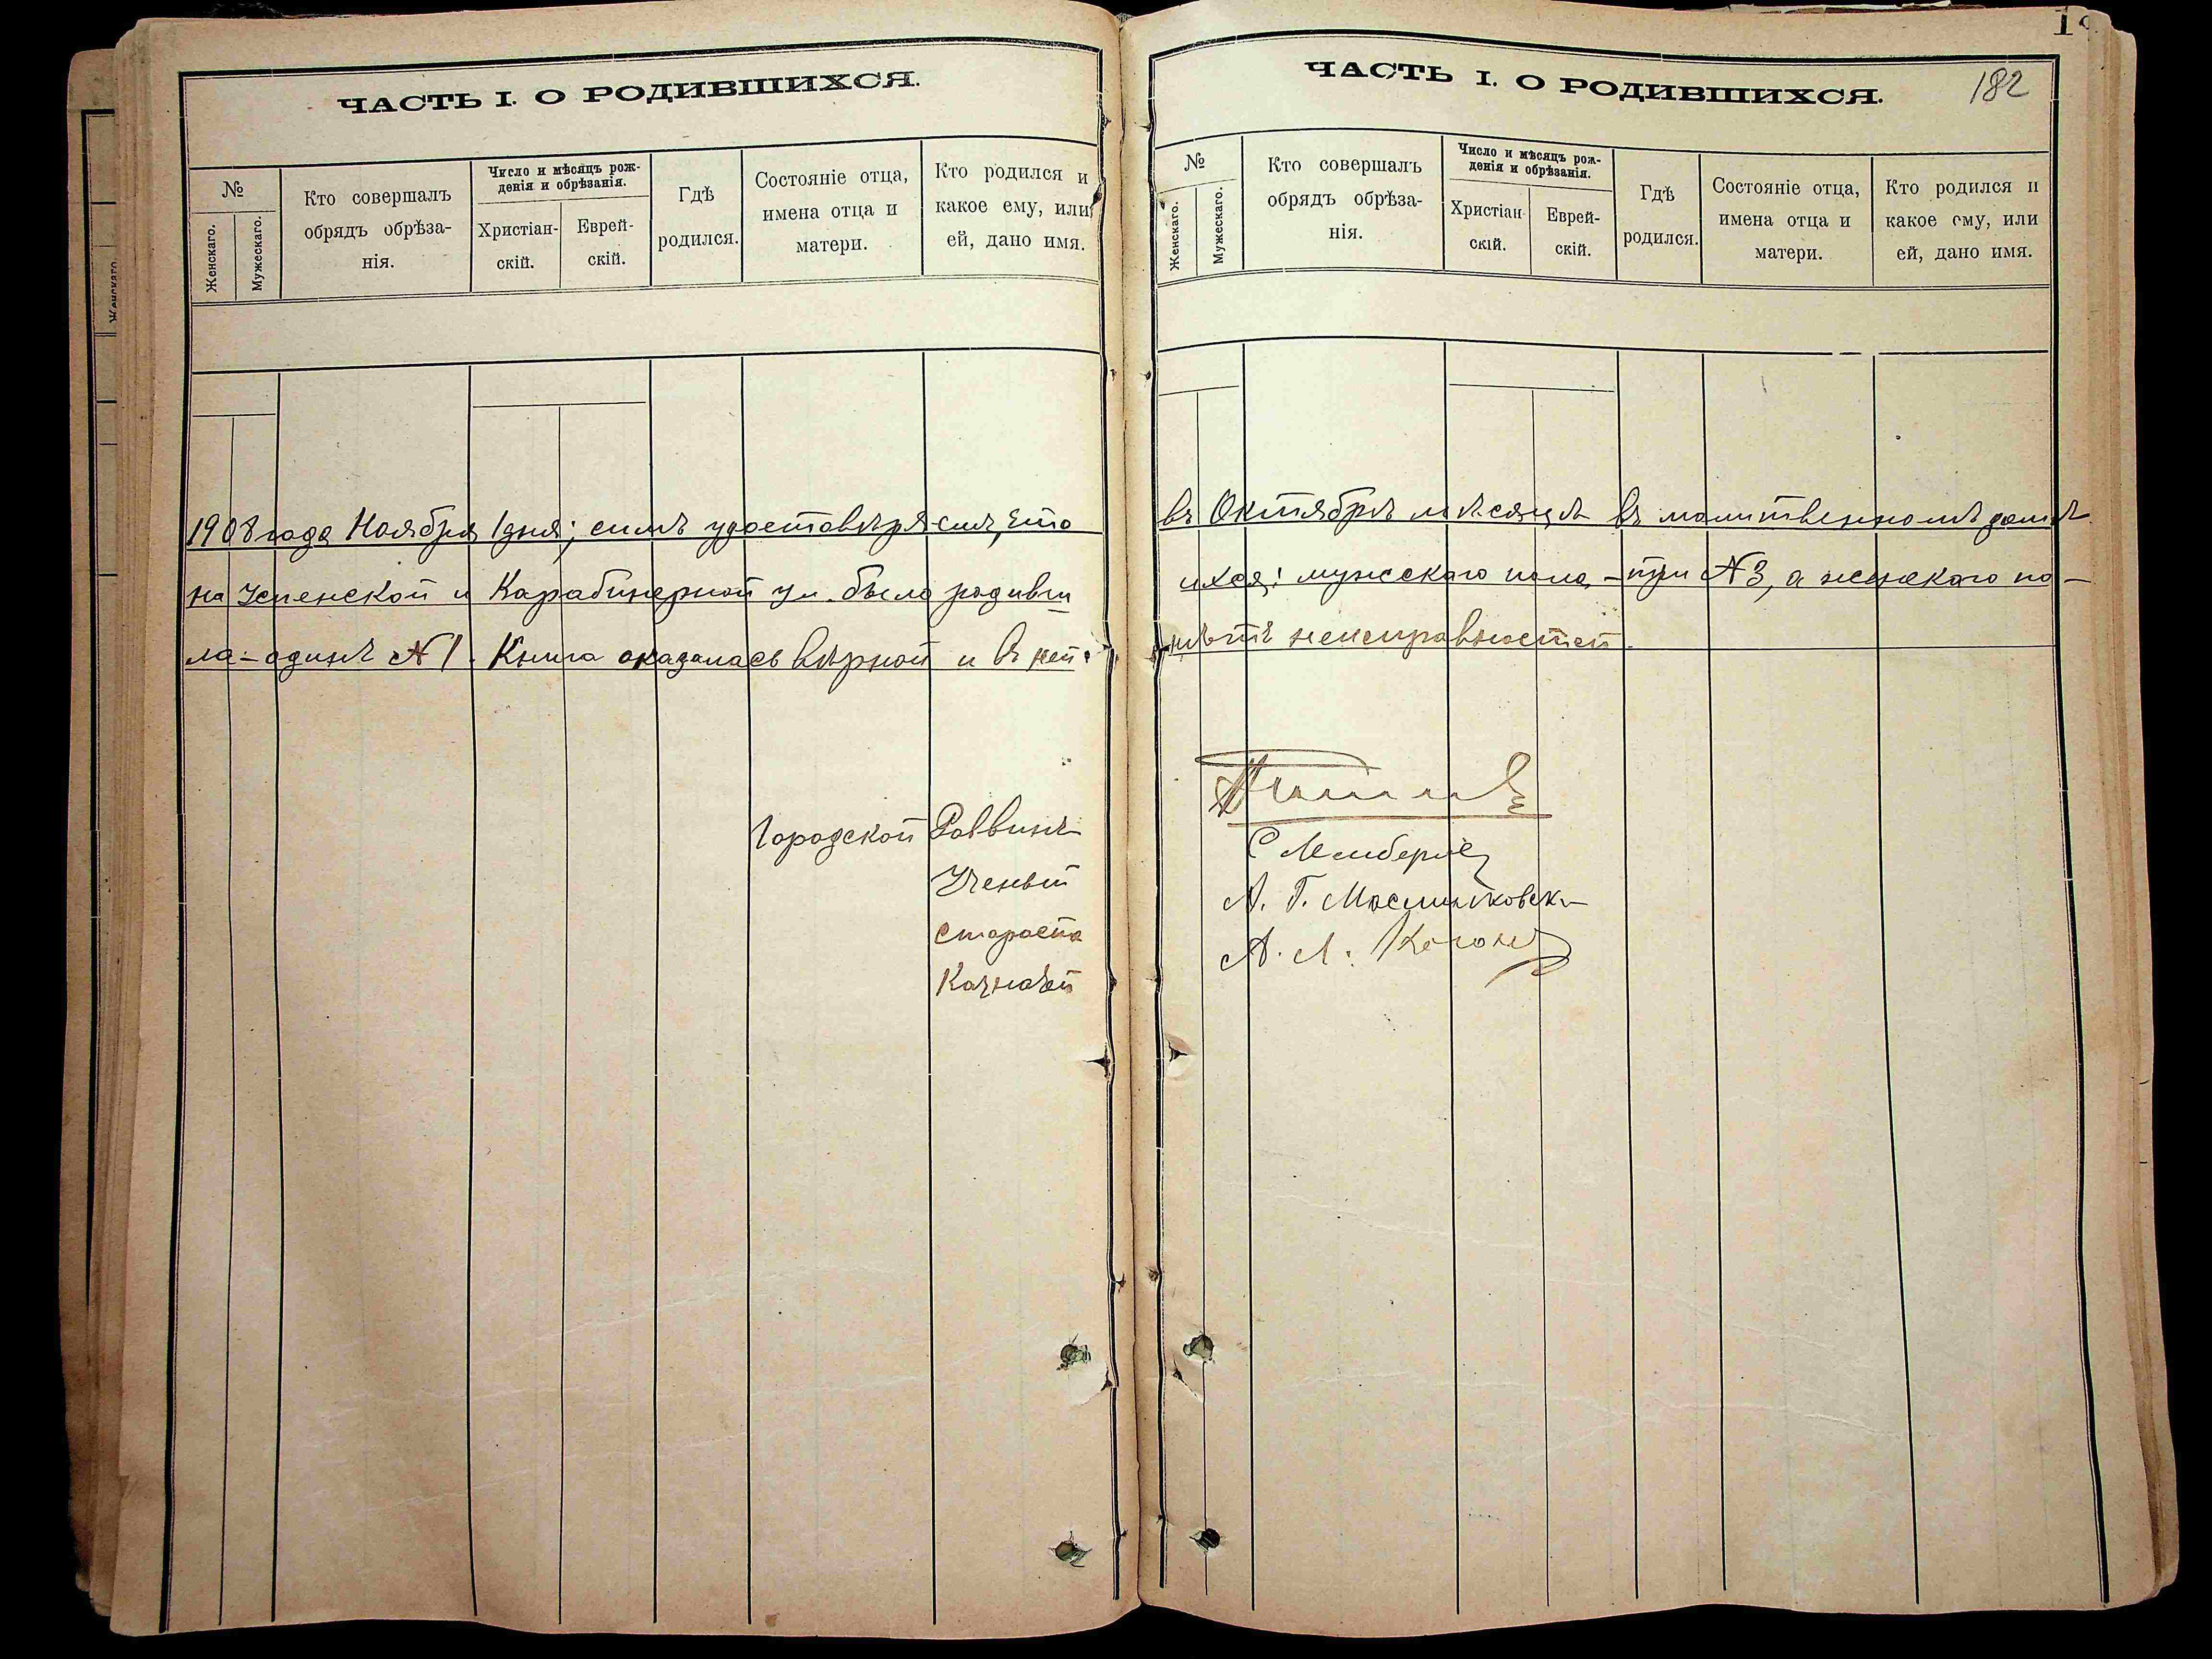 ЧАСТЬ I. О РОДИВШИХСЯ.
№
Женскаго.
Мужескаго.
Кто совершалъ
обрядъ обрѣза-
нія.
Число и мѣсяцъ рож-
денія и обрѣзанія.
Христіан-
скій.
Еврей-
скій.
Гдѣ
родился.
Состояніе отца,
имена отца и
матери.
Кто родился и
какое ему, или
ей, дано имя.
1908 года Ноября 1 дня; симъ удостовѣряемъ, что
на Успенской и Карабинерной ул. было родивш
ла - одинъ №1. Книга оказалась вѣрной и въ ней
Городской Раввинъ
Ученый
Староста
Казначей
ЧАСТЬ I. О РОДИВШИХСЯ.
182
№
Женскаго.
Мужескаго.
Кто совершалъ
обрядъ обрѣза-
нія.
Число и мѣсяцъ рож-
денія и обрѣзанія.
Христіан-
скій.
Еврей-
скій.
Гдѣ
родился.
Состояніе отца,
имена отца и
матери.
Кто родился и
какое ему, или
ей, дано имя.
въ Октябрѣ мѣсяцѣ въ молитвенномъ домѣ
ихся: мужескаго пола - три №3, а женскаго по-
нѣтъ неисправностей.
А. Г.
А. Л. Коганъ